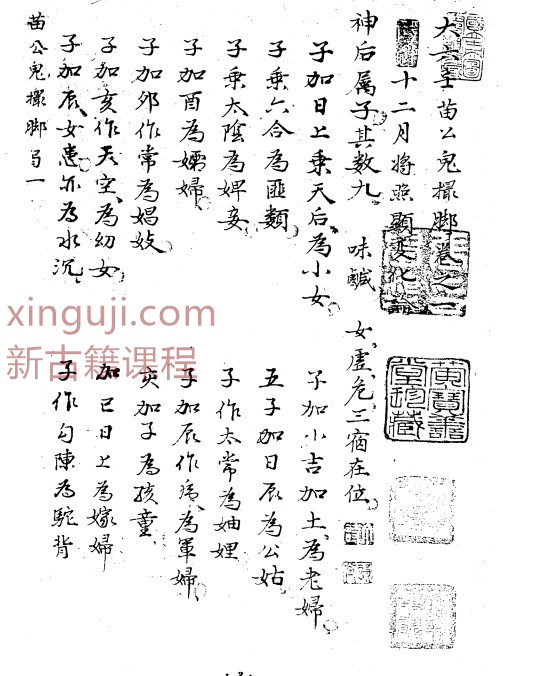 大六壬苗公鬼撮脚卷之一
十二月將照顯變化論
神后屬子其數九　味鹹　女虛危三宿在位
子加日上乘天后為小女　子加小吉加土為老婦
子乘六合為匪類　五子加日辰為公姑
子乘太陰為婢妾　子作太常為妯娌
子加酉為孀婦　子加辰作為軍婦
子加卯作常為娼妓　亥加子為孩童
子加亥作天空為幼女　加巳日上為嫁婦
子加辰女患亦為水沉　子作勾陳為駝背
苗公鬼撮脚
黃寶善堂珍藏
xinguji.com
新古籍课程